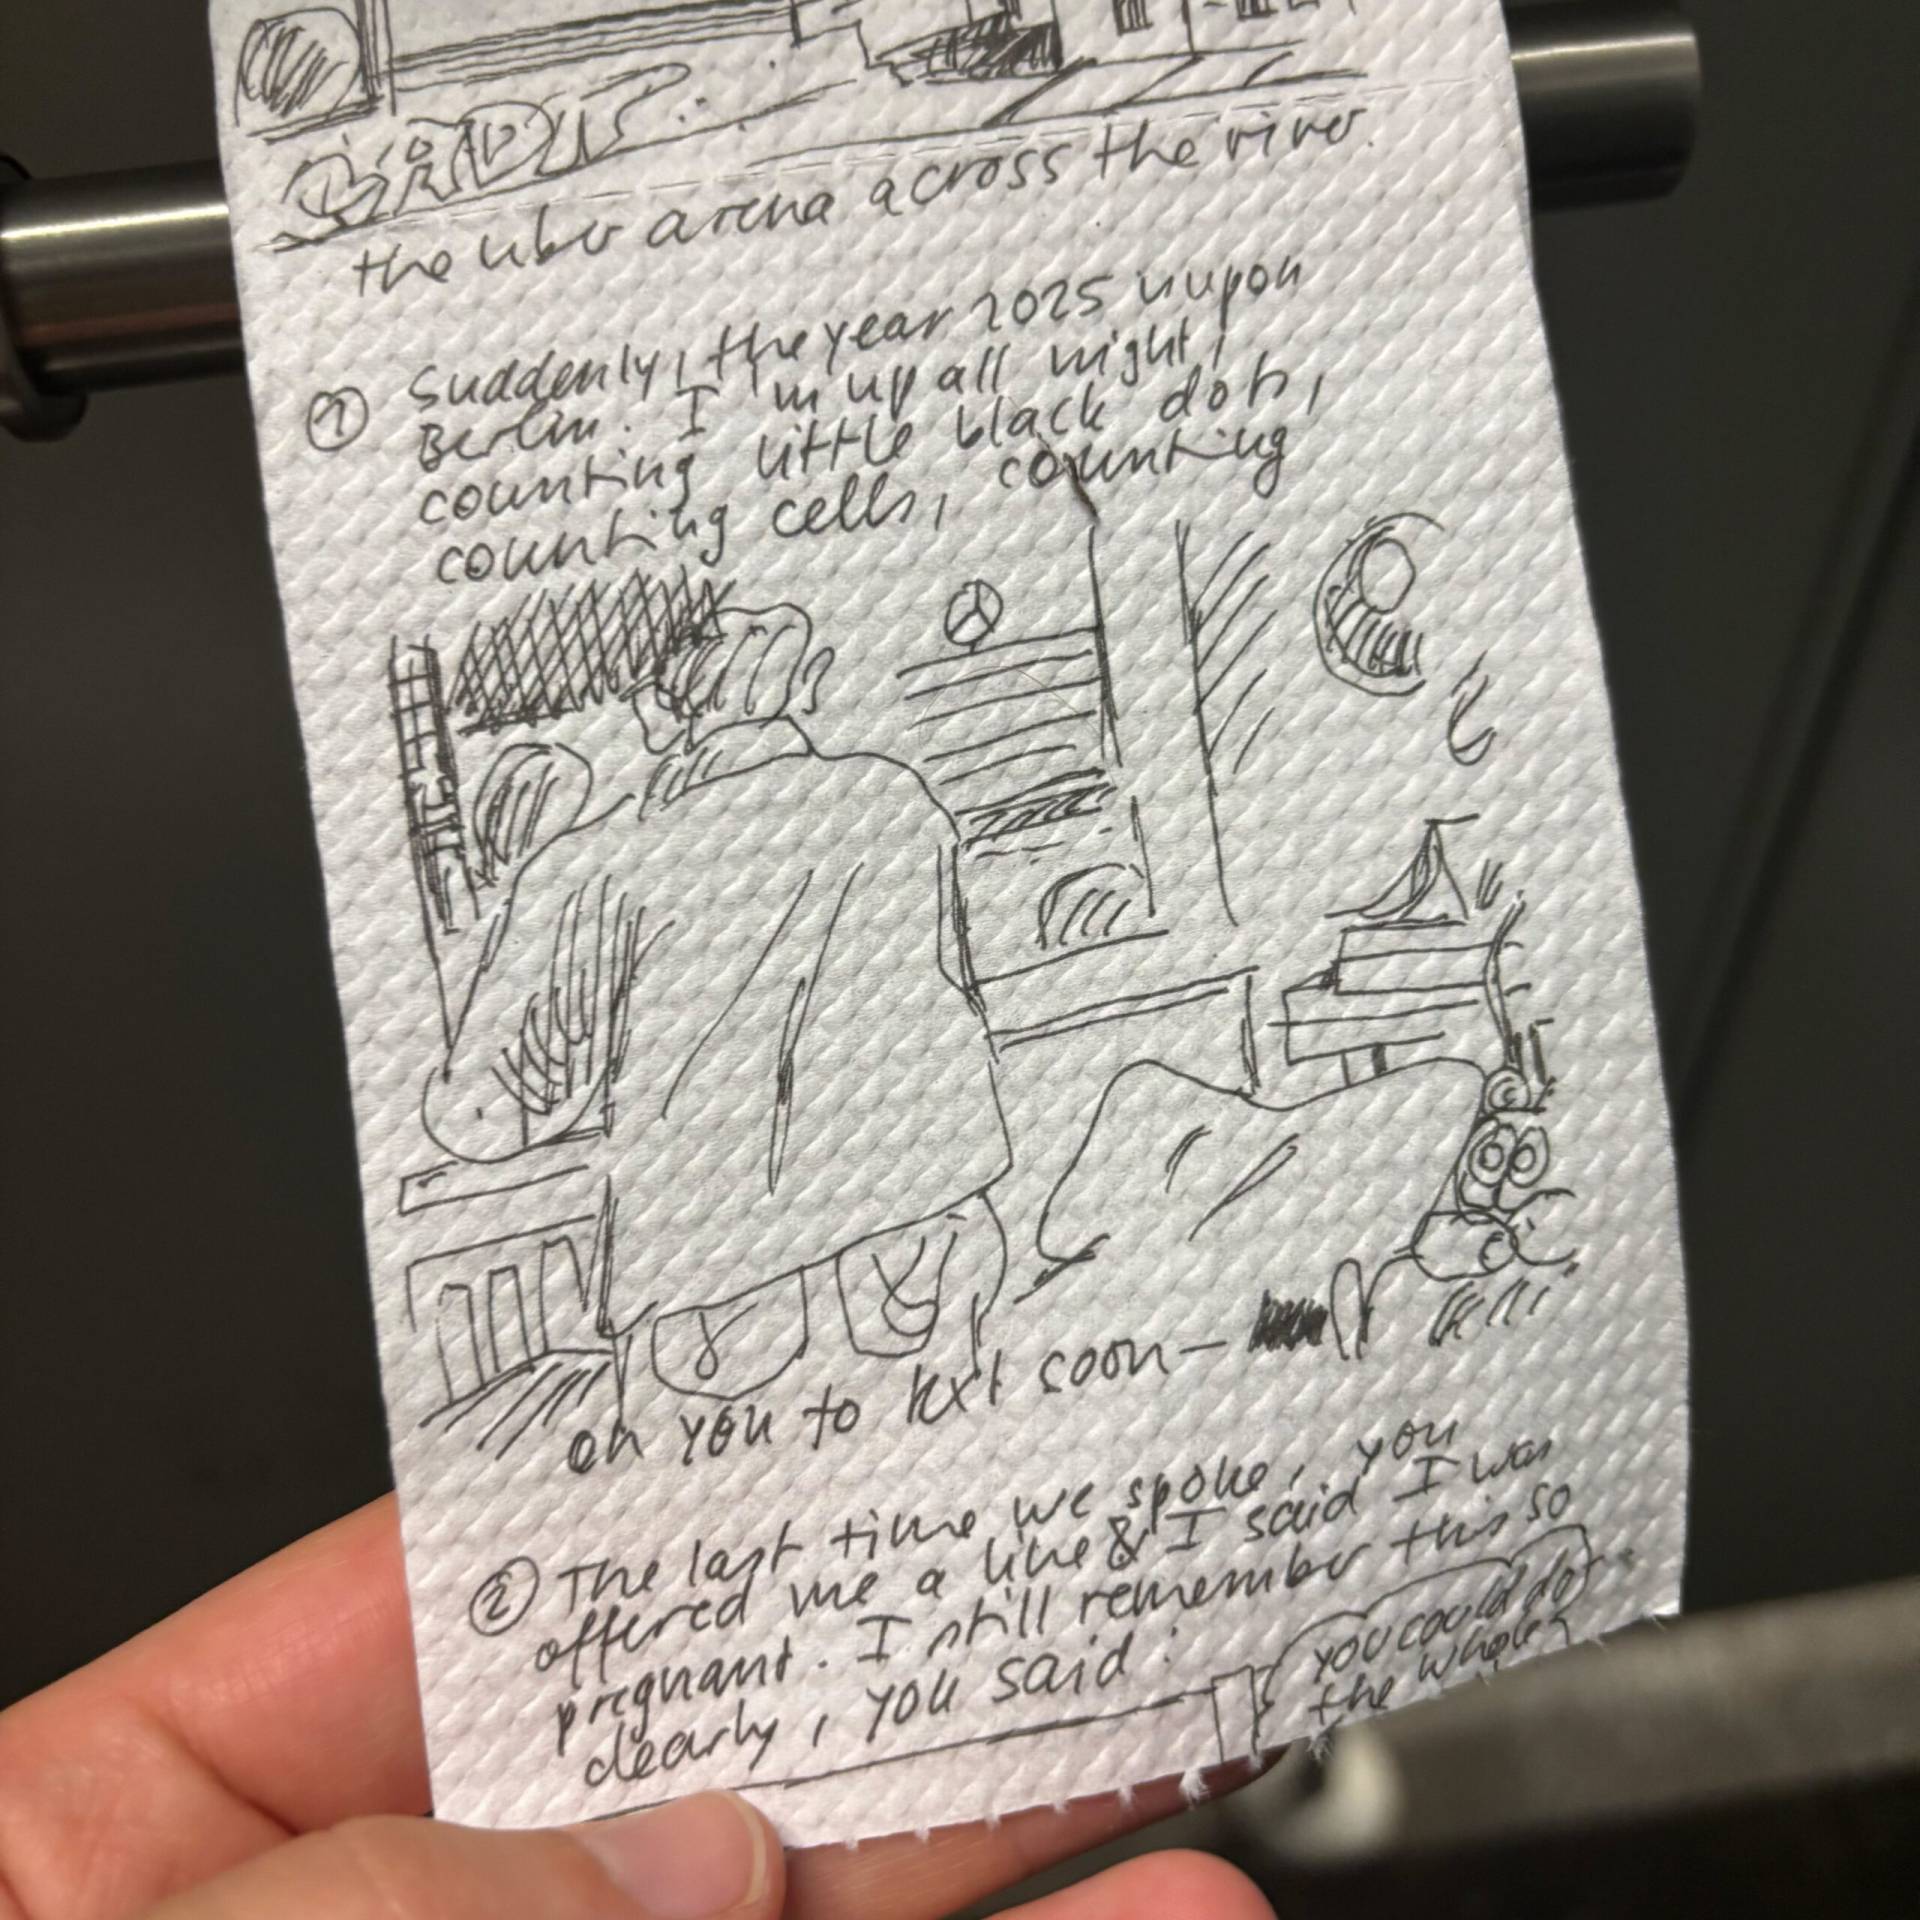 the uber arena across the river.
① Suddenly, the year 2025 is upon
Berlin. I'm up all night,
counting little black dots,
counting cells, counting
on you to text soon—
② The last time we spoke, you
offered me a line & I said I was
pregnant. I still remember this so
clearly, you said:
you could do
the whole